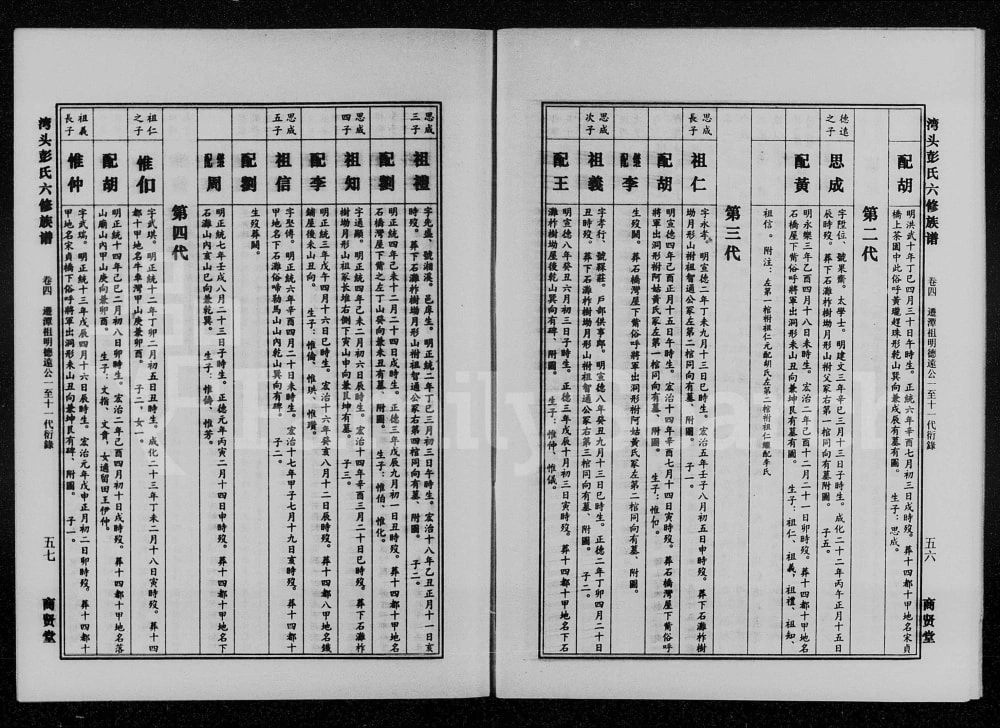 湾头彭氏六修族谱
卷四 遷潭祖明德遠公一至十一代衍錄
五六
商贤堂
配胡
明洪武十年丁巳四月三十日午時生。正統六年辛酉七月初三日戌時歿。葬十四都十甲地名宋貞
橋上茶園中此俗呼黃瓏趕珠形乾山巽向兼戌辰有墓有圖。 生子：思成。
第二代
德遠之子
思成
字陞位、號果齋。太學士。明建文三年辛巳二月十三日子時生。成化二十二年丙午正月十五日
辰時歿。葬下石灘柞樹坳月形山祔父冢右第一棺同向有墓附圖。 子五。
配黃
明永樂三年乙酉四月十八日未時生。宏治二年己酉十二月二十一日卯時歿。葬十四都十甲地名
石橋屋下葡俗呼將軍出洞形未山丑向兼坤艮有墓有圖。 生子：祖仁、祖義，祖禮、祖知、
祖信。 附注：左第一棺祔祖仁元配胡氏左第二棺祔祖仁繼配李氏
第三代
思成長子
祖仁
字永孝。明宣德二年丁未九月十三日巳時生。宏治五年壬子八月初五日申時歿。葬下石灘柞樹
坳月形山樹祖智通公冢左第二棺同向有墓、附圖。 子一。
配胡
明宣德四年己酉正月十五日午時生。宏治十四年辛酉七月二十四日寅時歿。葬石橋灣屋下葡俗呼
將軍出洞形祔阿姑黃氏冢左第一棺同向有墓、附圖。 生子：惟伯。
繼配李
生歿闕。葬石橋灣屋下葡俗呼將軍出洞形祔阿姑黃氏冢左第二棺同向有墓、附圖。
思成次子
祖義
字孝行、號縣莊。戶部供事郎。明宣德八年癸丑九月十三日巳時生。正德二年丁卯四月二十日
丑時歿。葬下石灘柞樹坳月形山祔祖智通公冢右第三棺同向有墓、附圖。 子二。
配王
明宣德八年癸丑六月初三日子時生。正德三年戊辰十月初三日寅時歿。葬十四都十甲地名下石
灘柞樹坳屋後乾山巽向有碑、附圖。 生子：惟仲、惟儀。
思成三子
祖禮
字先盛、號湘溪。邑庠生。明正統二年丁巳三月初三日午時生。宏治十八年乙丑正月十一日亥
時歿。葬下石灘柞樹坳月形山祔祖智通公冢右第四棺同向有墓、附圖。 子二。
配劉
明正統四年己未十二月二十四日戌時生。正德三年戊辰九月初一日丑時歿。葬十四都十甲地名
石橋灣屋下葡之左丁山癸向兼未丑有墓、附圖。 生子：惟伯、惟化。
思成四子
祖知
字通顯。明正統四年己未二月初六日時生。宏治十四年辛酉三月二十日巳時歿。葬下石灘柞
樹坳月形山祖冢長堆右側下寅山申向兼艮坤有墓。 子三。
配李
明正統三年戊午四月十六日巳時生。宏治十六年癸亥八月十二日辰時歿。葬十四都八甲地名鐵
鋪屋後未山丑向。 生子：惟倫、惟珙、惟瓚。
思成五子
祖信
字堅傅。明正統六年辛酉四月二十日未時生。宏治十七年甲子七月十九日亥時歿。葬十四都十
甲地名下石灘俗啼勒馬山山內乾山巽向有碑。 子二。
配劉
生歿葬闕。
繼配周
明正統七年壬戌八月二十三日子時生。正德元年丙寅二月十四日申時歿。葬十四都十甲地名下
石灘山內亥山巳向兼乾巽。 生子：惟倚、惟芳。
第四代
祖仁之子
惟伯
字武琪。明正統十二年丁卯二月初五日丑時生。成化二十三年丁未二月十八日寅時歿。葬十四
都十甲地名牛乘灣甲山庚向兼卯酉。 子二，女一。
配胡
明正統十四年己巳二月初八日卯時生。宏治二年己酉四月初十日戌時歿。葬十四都十甲地名落
山廟山內甲山庚向兼卯酉。 生子：文指、文貴，女適留田王伊仲。
祖義長子
惟仲
字武瑞。明正統十三年戊辰四月十六日辰時生。宏治元年戊申正月初二日卯時歿。葬十四都十
甲地名宋貞橋下俗呼將軍出洞形未山丑向兼坤艮有碑、附圖。 子一。
湾头彭氏六修族谱
卷四 遷潭祖明德遠公一至十一代衍錄
五七
商贤堂